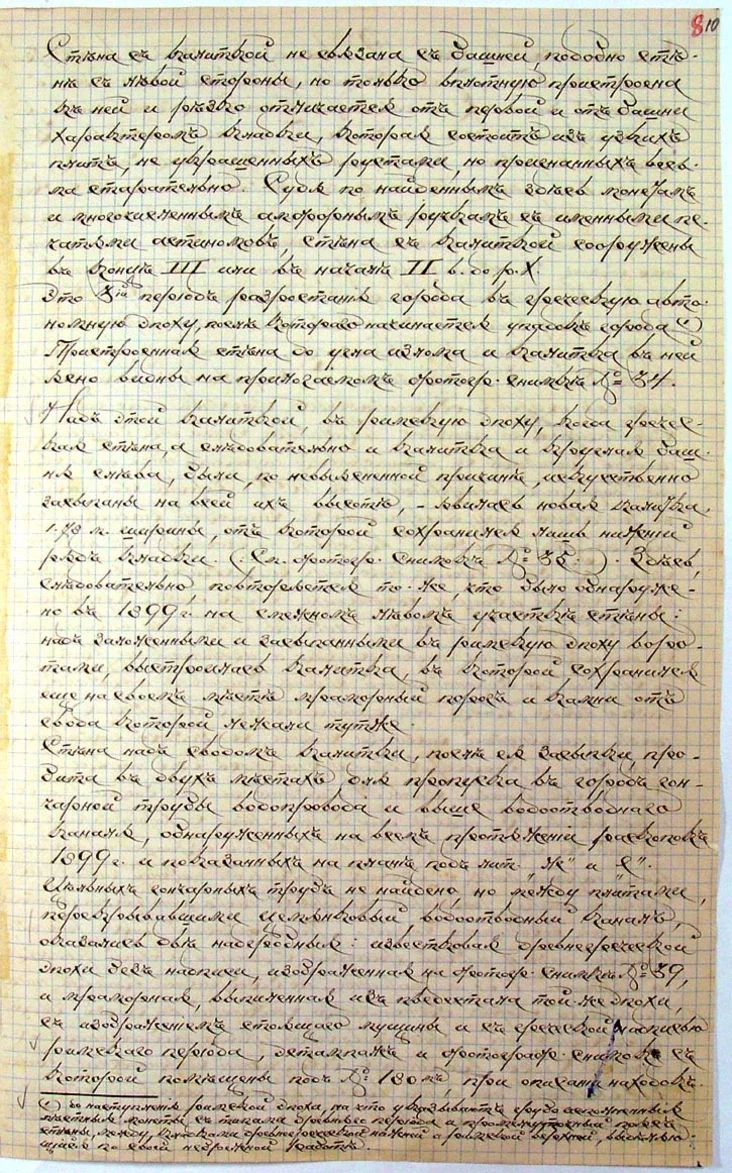 8 10
Стѣна съ калиткой не связана съ башней, подобно стѣ-
нѣ съ лѣвой стороны, но только вплотную пристроена
къ ней и рѣзко отличается отъ первой и отъ башни
характеромъ кладки, которая состоитъ изъ узкихъ
плитъ, не украшенныхъ рустами, но притесанныхъ весь-
ма старательно. Судя по найденнымъ здѣсь монетамъ
и многочисленнымъ амфорнымъ ручкамъ съ именными пе-
чатями астиномовъ, стѣна съ калиткой сооружены
въ концѣ III или въ началѣ II в. до р. X.
Это періодъ разростанія города въ греческую авто-
номную эпоху, послѣ котораго начинается упадокъ города (1)
Пристроенная стѣна до угла излома и калитка въ ней
ясно видны на прилагаемомъ фотогр. снимкѣ № 34.
Надъ этой калиткой, въ римскую эпоху, когда гречес-
кая стѣна, а слѣдовательно и калитка и круглая баш-
ня слѣва, были, по невыясненной причинѣ, искусственно
засыпаны на всей ихъ высотѣ, - явилась новая калитка,
1.78 м. ширины, отъ которой сохранился лишь нижній
рядъ кладки. (См. фотогр. снимокъ № 35). Здѣсь,
слѣдовательно, повторяется то-же, что было обнаруже-
но въ 1899 г. на смежномъ лѣвомъ участкѣ стѣны:
надъ заложенными и засыпанными въ римскую эпоху воро-
тами, выстроилась калитка, въ которой сохранился
еще на своемъ мѣстѣ мраморный порогъ и камни отъ
свода которой лежали тутже.
Стѣна надъ сводомъ калитки, послѣ ея засыпки, про-
бита въ двухъ мѣстахъ для пропуска въ городъ гон-
чарной трубы водопровода и выше водоотводнаго
канала, обнаруженныхъ на всемъ протяженіи раскопокъ
1899 г. и показанныхъ на планѣ подъ лит. „Ж" и „Е".
Цѣльныхъ гончарныхъ трубъ не найдено, но между плитами,
перекрывавшими цемянковый водоотводный каналъ,
оказались двѣ надгробныя: известковая древнегреческой
эпохи безъ надписи, изображенная на фотогр. снимкѣ № 39,
и мраморная, выпиленная изъ пьедестала той же эпохи,
съ изображеніемъ стоящаго мущины и съ греческой надписью
римскаго періода, эстампажъ и фотограф. снимокъ съ
которой помѣщены подъ № 180, при описи находокъ.
(1) до наступленія римской эпохи, на что указываютъ